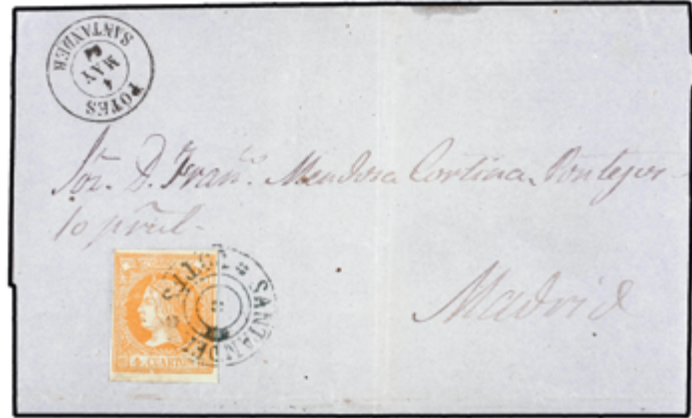 POTES
4
MAY
62
SANTANDER
Sor. D. Franco. Mendoza Cortina, Pontejos
pral.
Madrid
POTES
SANTANDER
4 CUARTOS